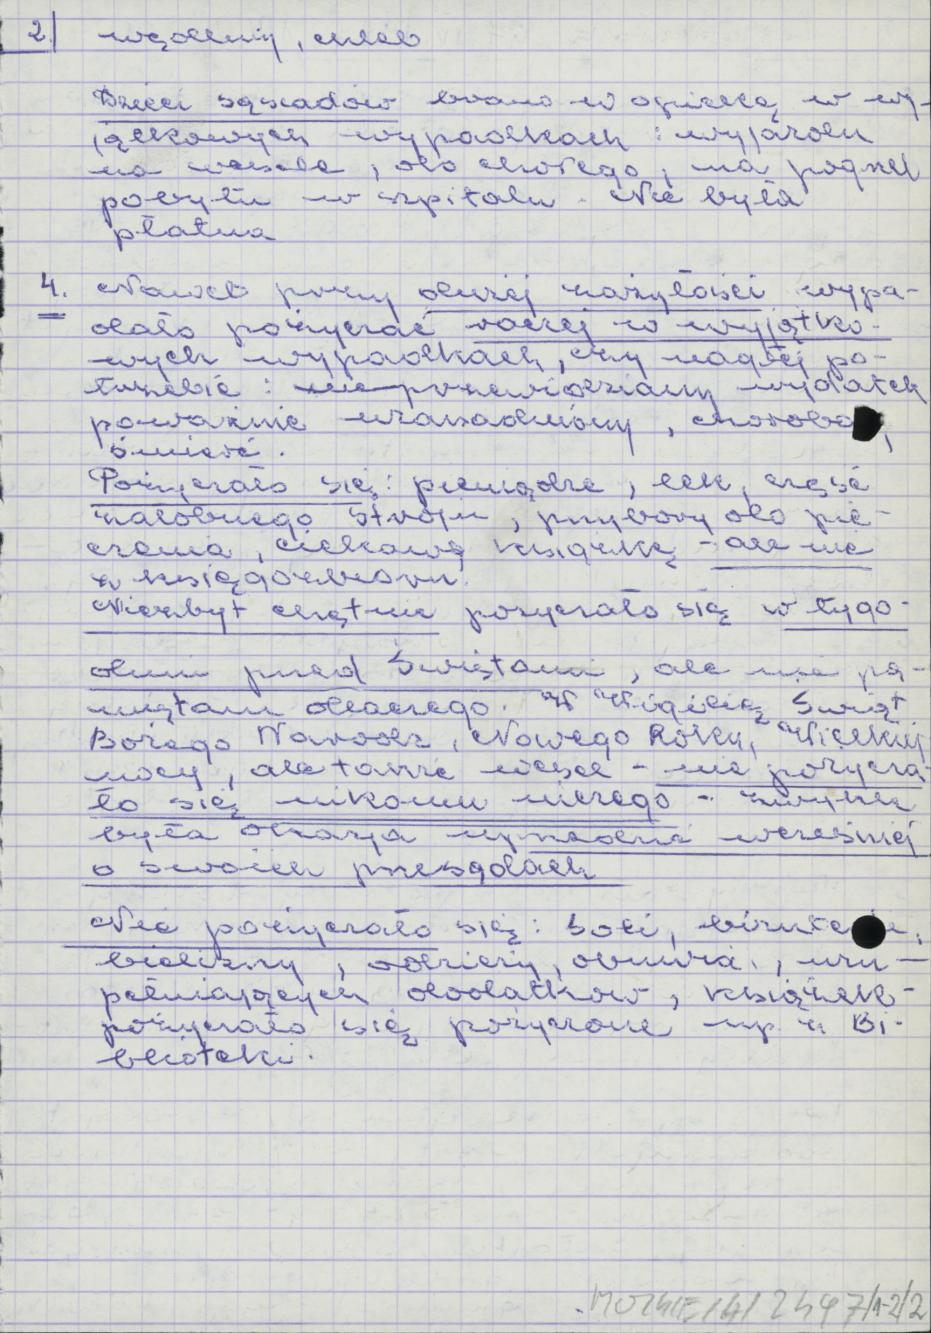 2.
wędliny, chleb
Dzieci sąsiadów brano w opiekę w wy-
jątkowych wypadkach: wyjazdu
na wesele, do chorego, na pogrzeb
pobytu w szpitalu. Nie była
płatna
4. Nawet przy dużej zażyłości wypa-
dało pożyczać raczej w wyjątko-
wych wypadkach, czy nagłej po-
trzebie: nieprzewidziany wydatek
poważnie uzasadniony, choroba,
śmierć.
Pożyczało się: pieniądze, lek, część
żałobnego stroju, przybory do pie-
czenia, ciekawą książkę - ale nie
z księgozbioru.
Niezbyt chętnie pożyczało się w tygo-
dniu przed Świętami, ale nie pa-
miętam dlaczego. W Wigilię Świąt
Bożego Narodz., Nowego Roku, Wielkiej
nocy, ale także wesel - nie pożycza-
ło się nikomu niczego -
była okazja uprzedzić wcześniej
o swoich przesądach
Nie pożyczało się: soli,
bielizny, odzieży, obuwia, uzu-
pełniających dodatków, książek-
pożyczało się pożyczone np. z Bi-
blioteki.
/1-2/2